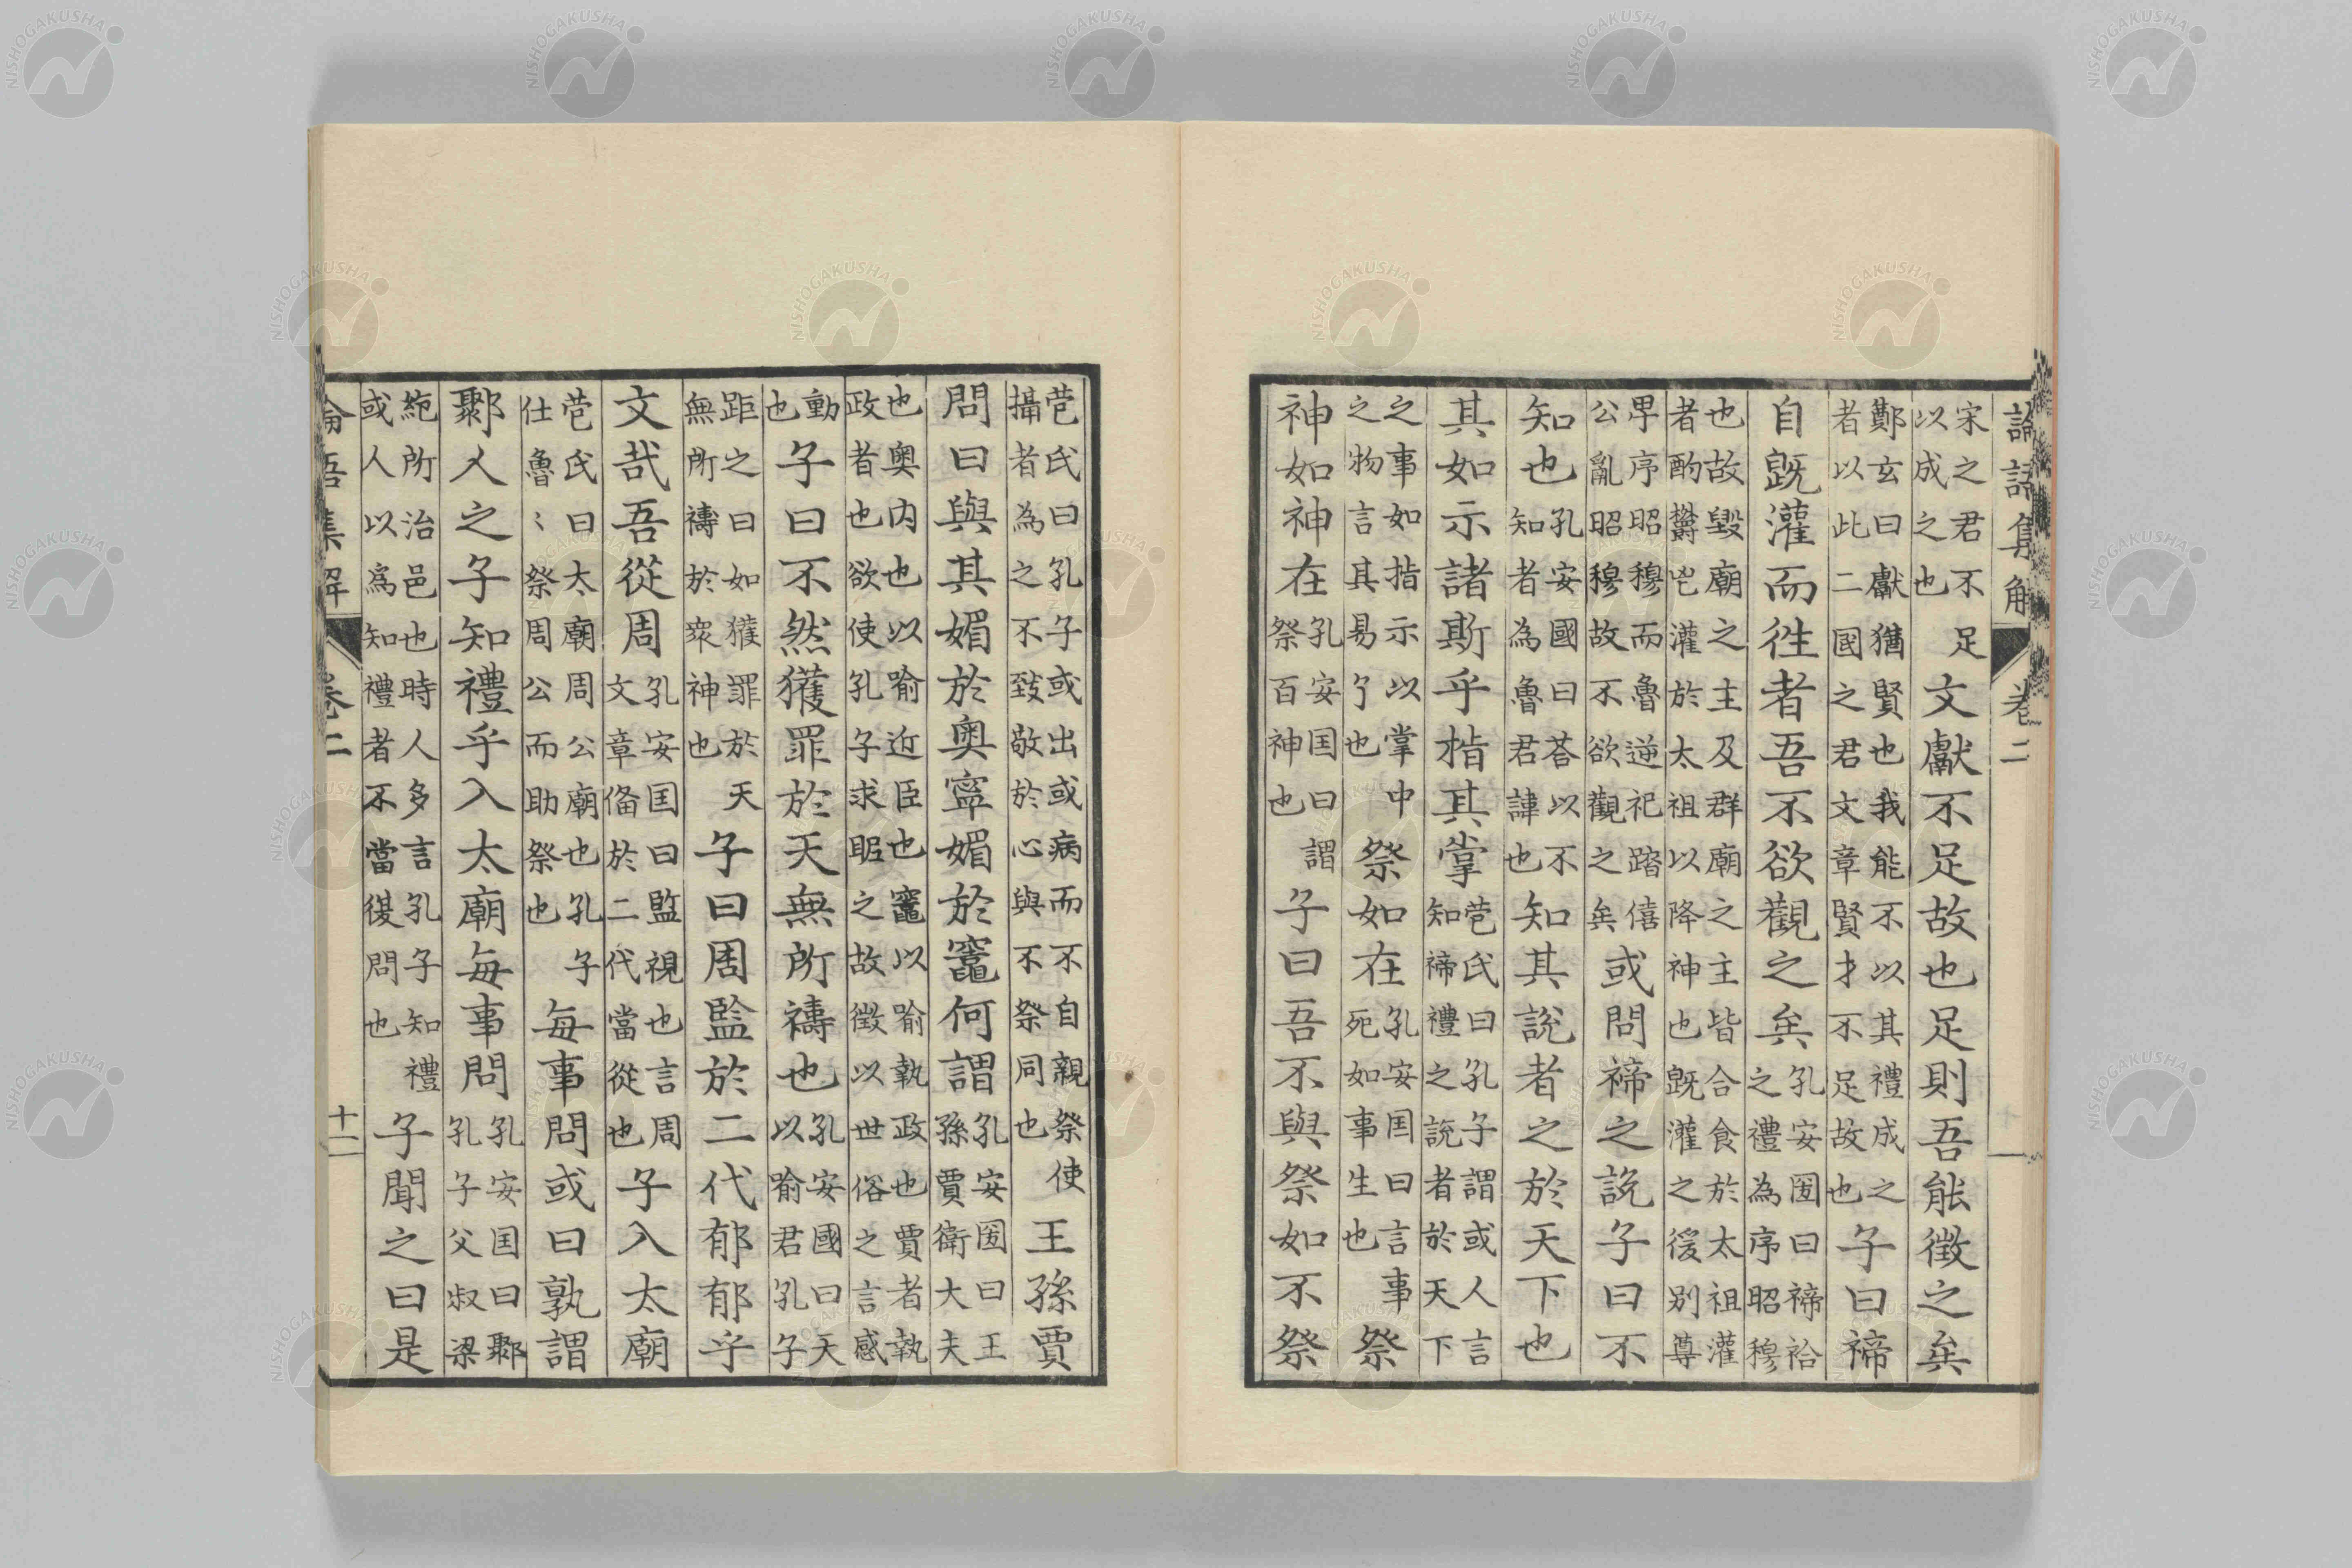 論語集解 卷二 十一
宋之君不足以成之也文獻不足故也足則吾能徵之矣
鄭玄曰獻猶賢也我能不以其禮成之者以此二國之君文章賢才不足故也子曰禘
自既灌而徃者吾不欲觀之矣孔安圀曰禘祫之禮為序昭穆
也故毀廟之主及群廟之主皆合食於太祖灌者酌鬱鬯灌於太祖以降神也既灌之後别尊
卑序昭穆而魯逆祀躋僖公亂昭穆故不欲觀之矣或問禘之説子曰不
知也孔安國曰荅以不知者為魯君諱也知其說者之於天下也
其如示諸斯乎指其掌苞氏曰孔子謂或人言知禘禮之說者於天下
之事如指示以掌中之物言其易了也祭如在孔安囯曰言事死如事生也祭
神如神在孔安囯曰謂祭百神也子曰吾不與祭如不祭
苞氏曰孔子或出或病而不自親祭使攝者為之不致敬於心與不祭同也王孫賈
問曰與其媚於奥寧媚於竈何謂孔安圀曰王孫賈衛大夫
也奥内也以喻近臣也竈以喻執政也賈者執政者也欲使孔子求昵之故徵以世俗之言感
動也子曰不然獲罪於天無所禱也孔安國曰天以喻君孔子
距之曰如獲罪於天無所禱於衆神也子曰周監於二代郁郁乎
文哉吾從周孔安囯曰監視也言周文章俻於二代當從也子入太廟
苞氏曰太廟周公廟也孔子仕魯〻祭周公而助祭也每事問或曰孰謂
鄹人之子知禮乎入太廟每事問孔安囯曰鄹孔子父叔梁
紇所治邑也時人多言孔子知禮或人以為知禮者不當復問也子聞之曰是
論語集解 卷二 十二